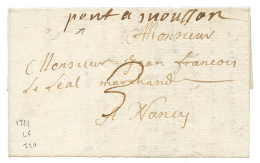 pont a mousson
Monsieur
Monsieur Jean francois
le Leal marchand
3
A Nancy
1721